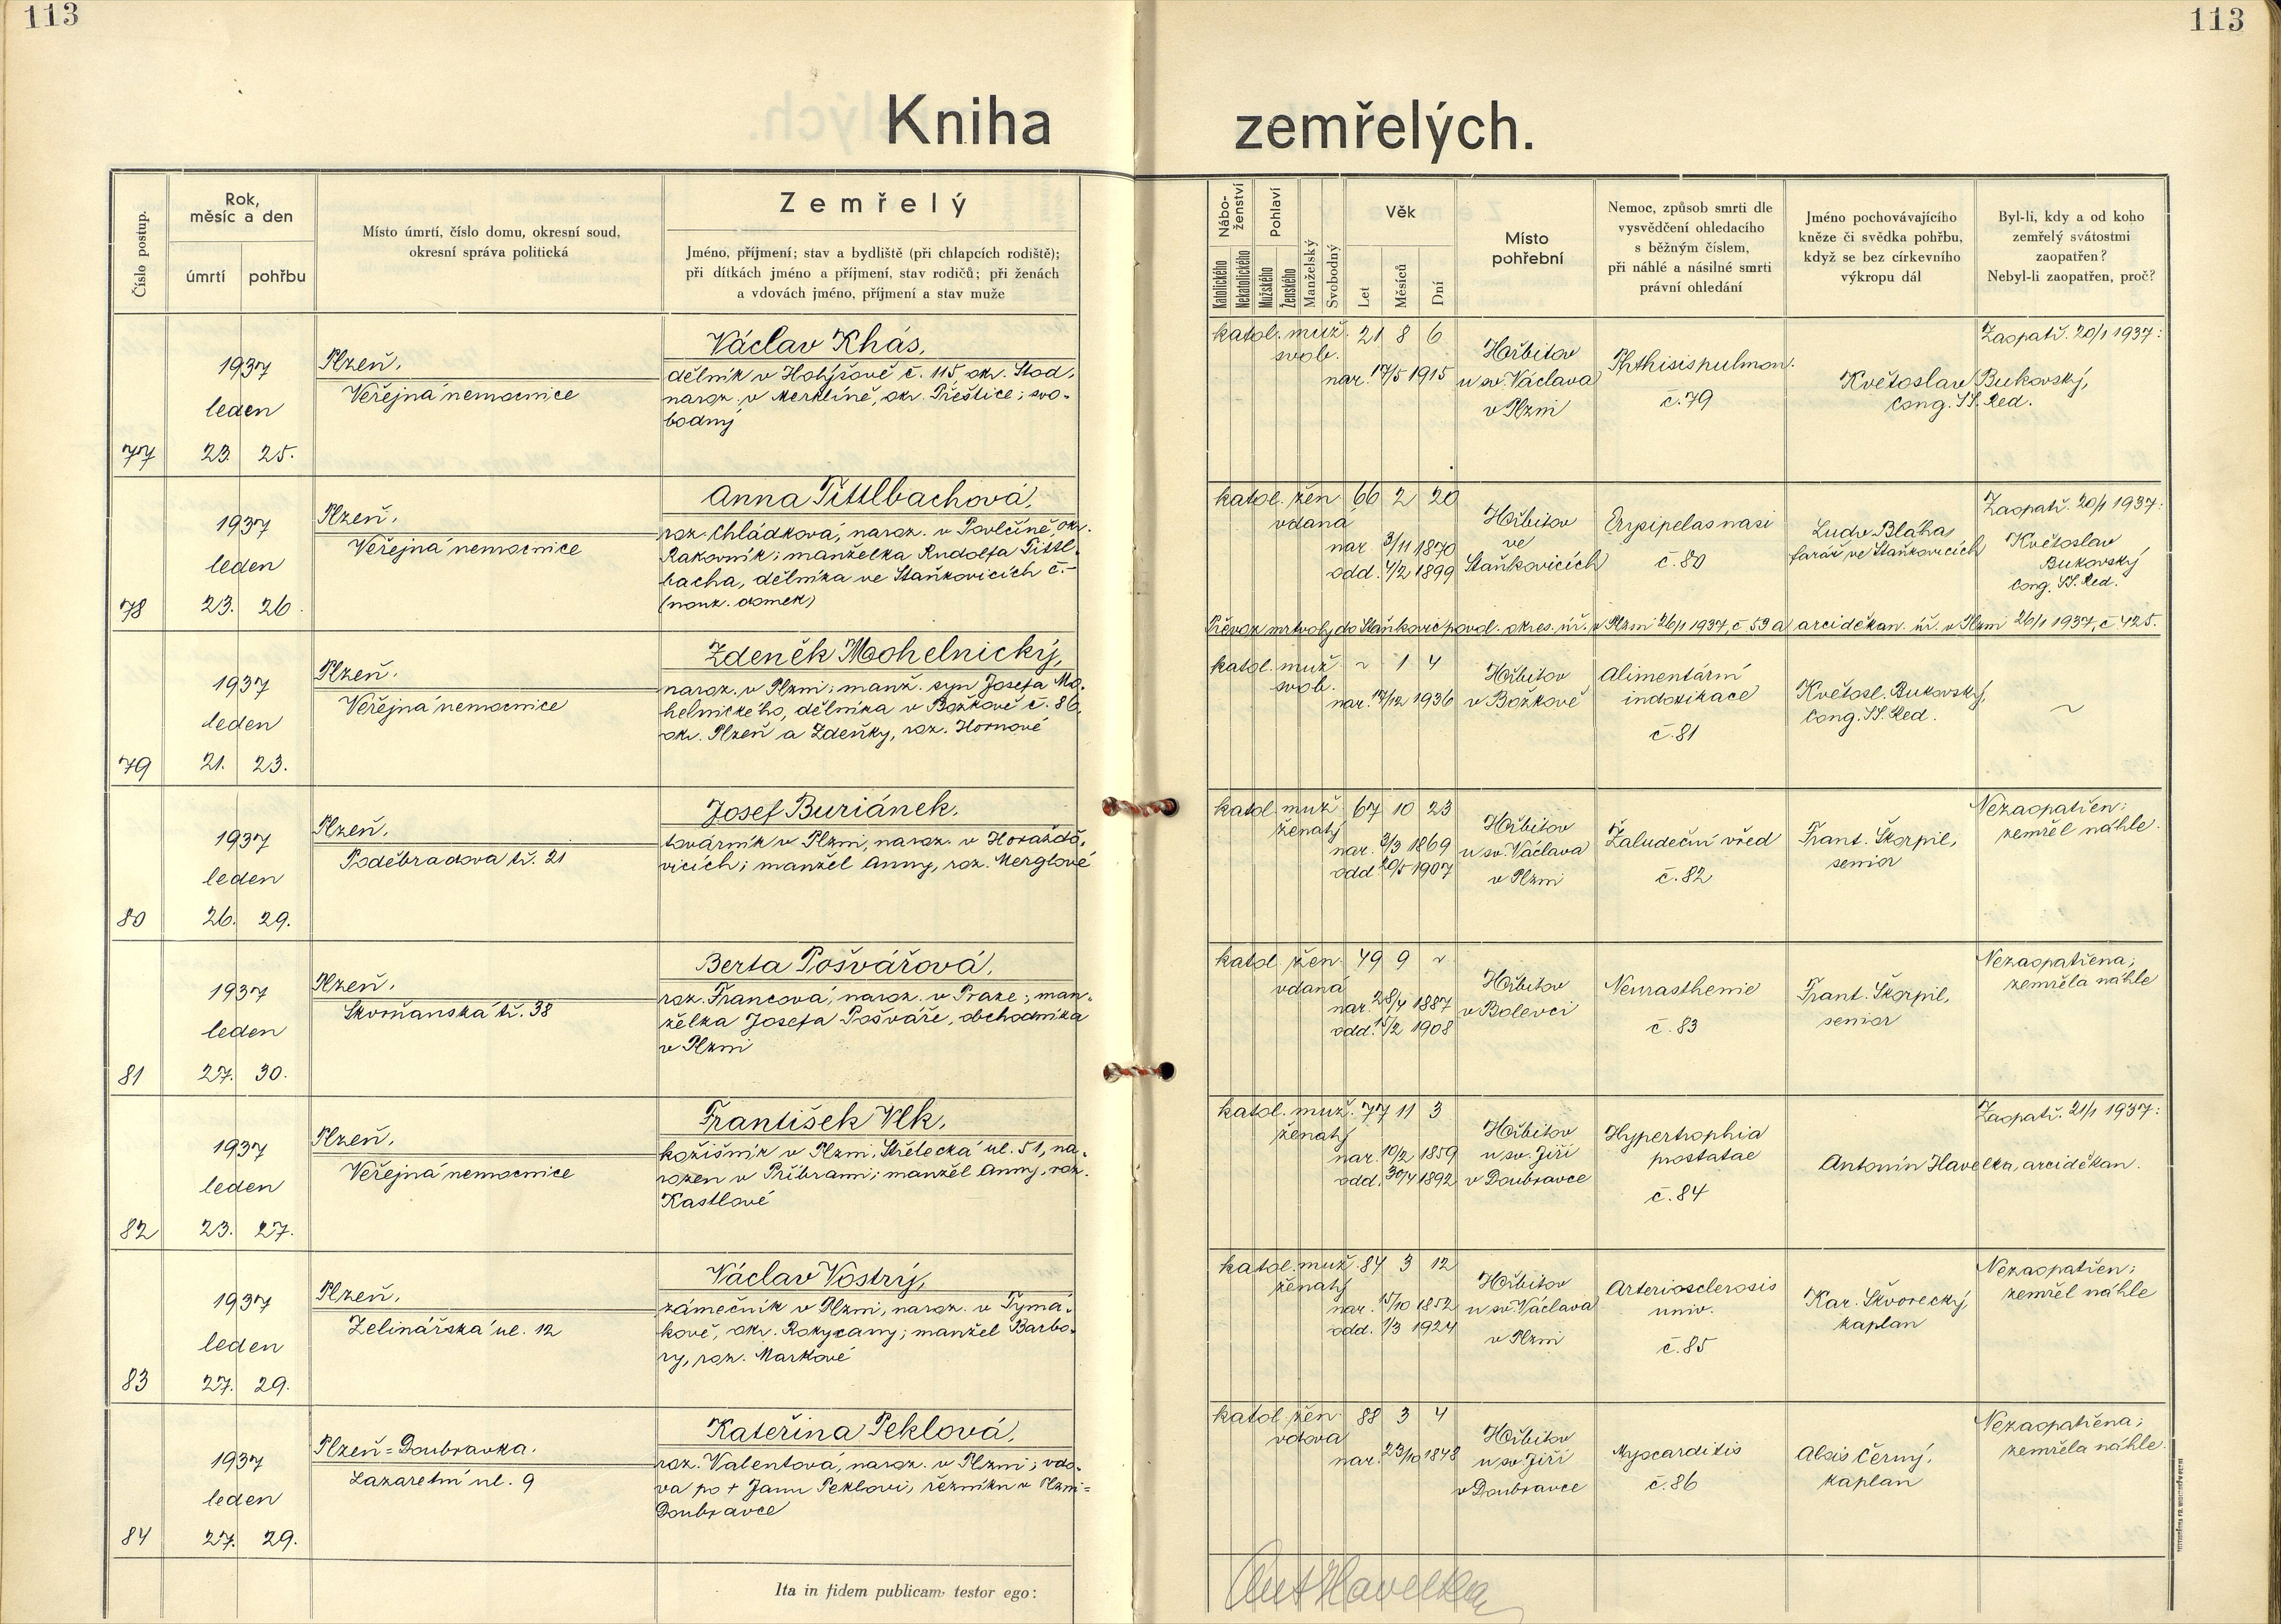 113
113
Kniha zemřelých.
Číslo postup.
Rok, měsíc a den
úmrtí
pohřbu
Místo úmrtí, číslo domu, okresní soud,
okresní správa politická
Zemřelý
Jméno, příjmení; stav a bydliště (při chlapcích rodiště);
při dítkách jméno a příjmení, stav rodičů; při ženách
a vdovách jméno, příjmení a stav muže
Nábo-
ženství
Katolického
Nekatolického
Pohlaví
Mužského
Ženského
Manželský
Svobodný
Věk
Let
Měsíců
Dní
Místo
pohřební
Nemoc, způsob smrti dle
vysvědčení ohledacího
s běžným číslem,
při náhlé a násilné smrti
právní ohledání
Jméno pochovávajícího
kněze či svědka pohřbu,
když se bez církevního
výkropu dál
Byl-li, kdy a od koho
zemřelý svátostmi
zaopatřen?
Nebyl-li zaopatřen, proč?
77
1937
leden
23. 25.
Plzeň,
Veřejná nemocnice
Václav Khás,
dělník v Holýšově č. 115, okr. Stod,
naroz. v Merklíně, okr. Přeštice; svo-
bodný
katol. muž. 21 8 6
svob.
nar. 17/5 1915
Hřbitov
u sv. Václava
v Plzni
Phthisis pulmon.
č. 79
Zaopatř. 20/1 1937:
Květoslav Bukovský,
Cong. SS. Red.
78
1937
leden
23. 26.
Plzeň,
Veřejná nemocnice
Anna Tittlbachová,
roz. Chládková, naroz. v Povlčíně, okr.
Rakovník; manželka Rudolfa Tittl-
bacha, dělníka ve Staňkovicích č.-
(nouz. domek)
katol. žen. 66 2 20
vdaná
nar. 3/11 1870
odd. 4/2 1899
Hřbitov
ve
Staňkovicích
Erysipelas nasi
č. 80
Ludv. Blaha,
farář ve Staňkovicích
Zaopatř. 20/1 1937:
Květoslav
Bukovský
Cong. SS. Red.
Převoz mrtvoly do Staňkovic povol. okres. úř. v Plzni 26/1 1937, č. 59 a arciděkan. úř. v Plzni 26/1 1937, č. 425.
79
1937
leden
21. 23.
Plzeň,
Veřejná nemocnice
Zdeněk Mohelnický,
naroz. v Plzni; manž. syn Josefa Mo-
helnického, dělníka v Božkově č. 86,
okr. Plzeň a Zdeňky, roz. Hornové
katol. muž. ~ 1 4
svob.
nar. 17/12 1936
Hřbitov
v Božkově
Alimentární
indoxikace
č. 81
Květosl. Bukovský,
Cong. SS. Red.
~
80
1937
leden
26. 29.
Plzeň,
Poděbradova tř. 21
Josef Buriánek,
továrník v Plzni, naroz. v Horažďo-
vicích; manžel Anny, roz. Merglové
katol. muž. 67 10 23
ženatý
nar. 3/3 1869
odd. 20/5 1907
Hřbitov
u sv. Václava
v Plzni
Žaludeční vřed
č. 82
Frant. Škorpil,
senior
Nezaopatřen;
zemřel náhle.
81
1937
leden
27. 30.
Plzeň,
Skvrňanská tř. 38
Berta Pošvářová,
roz. Francová, naroz. v Praze; man-
želka Josefa Pošváře, obchodníka
v Plzni
katol. žen. 49 9 ~
vdaná
nar. 28/4 1887
odd. 15/2 1908
Hřbitov
v Bolevci
Neurasthenie
č. 83
Frant. Škorpil,
senior
Nezaopatřena;
zemřela náhle
82
1937
leden
23. 27.
Plzeň,
Veřejná nemocnice
František Vlk,
kožišník v Plzni, Střelecká ul. 51, na-
rozen v Příbrami; manžel Anny, roz.
Kastlové
katol. muž. 77 11 3
ženatý
nar. 10/2 1859
odd. 30/4 1892
Hřbitov
u sv. Jiří
v Doubravce
Hypertrophia
prostatae
č. 84
Zaopatř. 21/1 1937:
Antonín Havelka, arciděkan.
83
1937
leden
27. 29.
Plzeň,
Zelinářská ul. 12
Václav Vostrý,
zámečník v Plzni, naroz. v Tymá-
kově, okr. Rokycany; manžel Barbo-
ry, roz. Markové
katol. muž. 84 3 12
ženatý
nar. 15/10 1852
odd. 1/3 1924
Hřbitov
u sv. Václava
v Plzni
Arteriosclerosis
univ.
č. 85
Kar. Škvorecký,
kaplan
Nezaopatřen;
zemřel náhle
84
1937
leden
27. 29.
Plzeň=Doubravka,
Lazaretní ul. 9
Kateřina Peklová,
roz. Valentová, naroz. v Plzni; vdo-
va po + Janu Peklovi, řezníku v Plzni=
Doubravce
katol. žen. 88 3 4
vdova
nar. 23/10 1848
Hřbitov
u sv. Jiří
v Doubravce
Myocarditis
č. 86
Alois Černý,
kaplan
Nezaopatřena;
zemřela náhle.
Ita in fidem publicam testor ego:
Ant Havelka